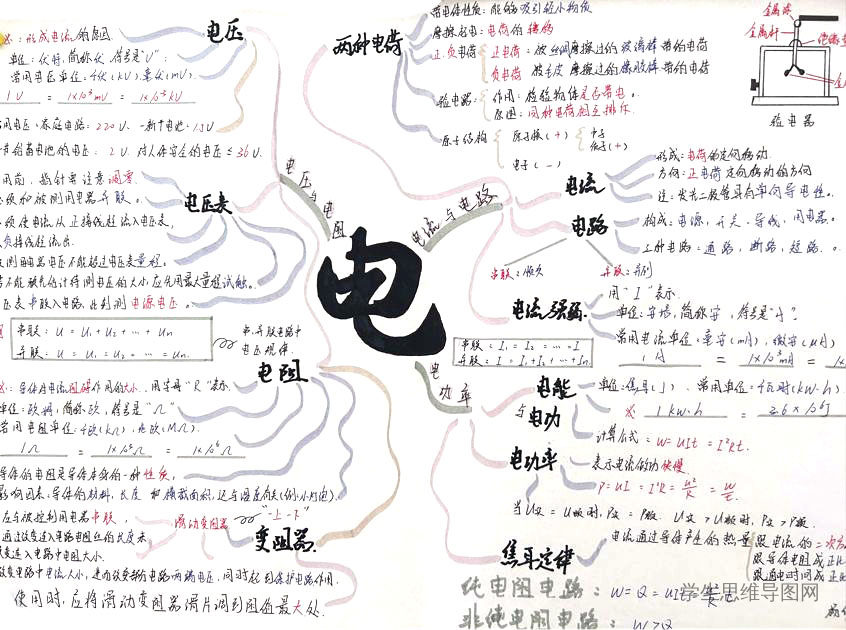 电
电压与电阻
电压
形成电流的原因
单位:伏特,简称伏,符号是"V"
常用电压单位:千伏(kV)毫伏(mV)
1V = 1×10³mV = 1×10⁻³kV
家庭电路:220V、一新干电池:1.5V
蓄电池的电压:2V.对人体安全的电压≤36V.
电压表
用前,指针要注意调零
必须和被测用电器并联。
必须使电流从正接线柱流入电压表,
负接线柱流出.
被测用电器电压不能超过电压表量程。
若不能预先估计待测电压的大小,应先用最大量程试触。
压表串联入电路,此刻测电源电压。
串联:U=U₁+U₂+…+Un
并联:U=U₁=U₂=…=Un.
串、并联电路中
电压规律.
电阻
导体对电流阻碍作用的大小.用字母"R"表示.
单位:欧姆,简称欧,符号是"Ω"
常用电阻单位:千欧(kΩ),兆欧(MΩ).
导体的电阻是导体本身的一种性质,
影响因素:导体的材料,长度和横截面积,还与温度有关(例:小灯泡)
变阻器
滑动变阻器
"一上一下"
应与被控制用电器串联,
通过改变连入电路电阻丝的长度来
改变连入电路中电阻大小.
改变电路中电流大小,进而改变部分电路两端电压,同时起到保护电路作用.
使用时,应将滑动变阻器滑片调到阻值最大处.
电流与电路
两种电荷
带电体性质:能够吸引轻小物体
摩擦起电:电荷的转移
正.负电荷
正电荷:被丝绸摩擦过的玻璃棒带的电荷
负电荷 被毛皮摩擦过的橡胶棒带的电荷
验电器:
作用:检验物体是否带电。
原理:同种电荷相互排斥.
原子结构
原子核(+)
中子
质子(+)
电子(-)
金属球
金属杆
验电器
电流
形成:电荷的定向移动
方向:正电荷定向移动的方向
注:发光二极管具有单向导电性。
电路
构成:电源,开关.导线,用电器。
三种电路:通路,断路,短路.。
电流强弱
用"I"表示.
单位:安培,简称安,符号是"A"?
常用电流单位:毫安(mA),微安(μA)
1A = 1×10³mA =
串联:I₁=I₂=…=I
并联:I=I₁+I₂+…+In
电功率
电能
与电功
单位:焦耳(J).常用单位:千瓦时(kW·h)
1kW·h =
计算公式=W=UIt=I²Rt.
电功率
表示电流做功快慢
P=UI=I²R=U²/R=W/t.
当U实=U额时,P实=P额. U实>U额时,P实>P额.
焦耳定律
电流通过导体产生的热量
跟电流的二次方
跟导体电阻成正比
跟通电时间成正比
纯电阻电路:W=Q=UIt
非纯电阻电路:W>Q
学生思维导图网